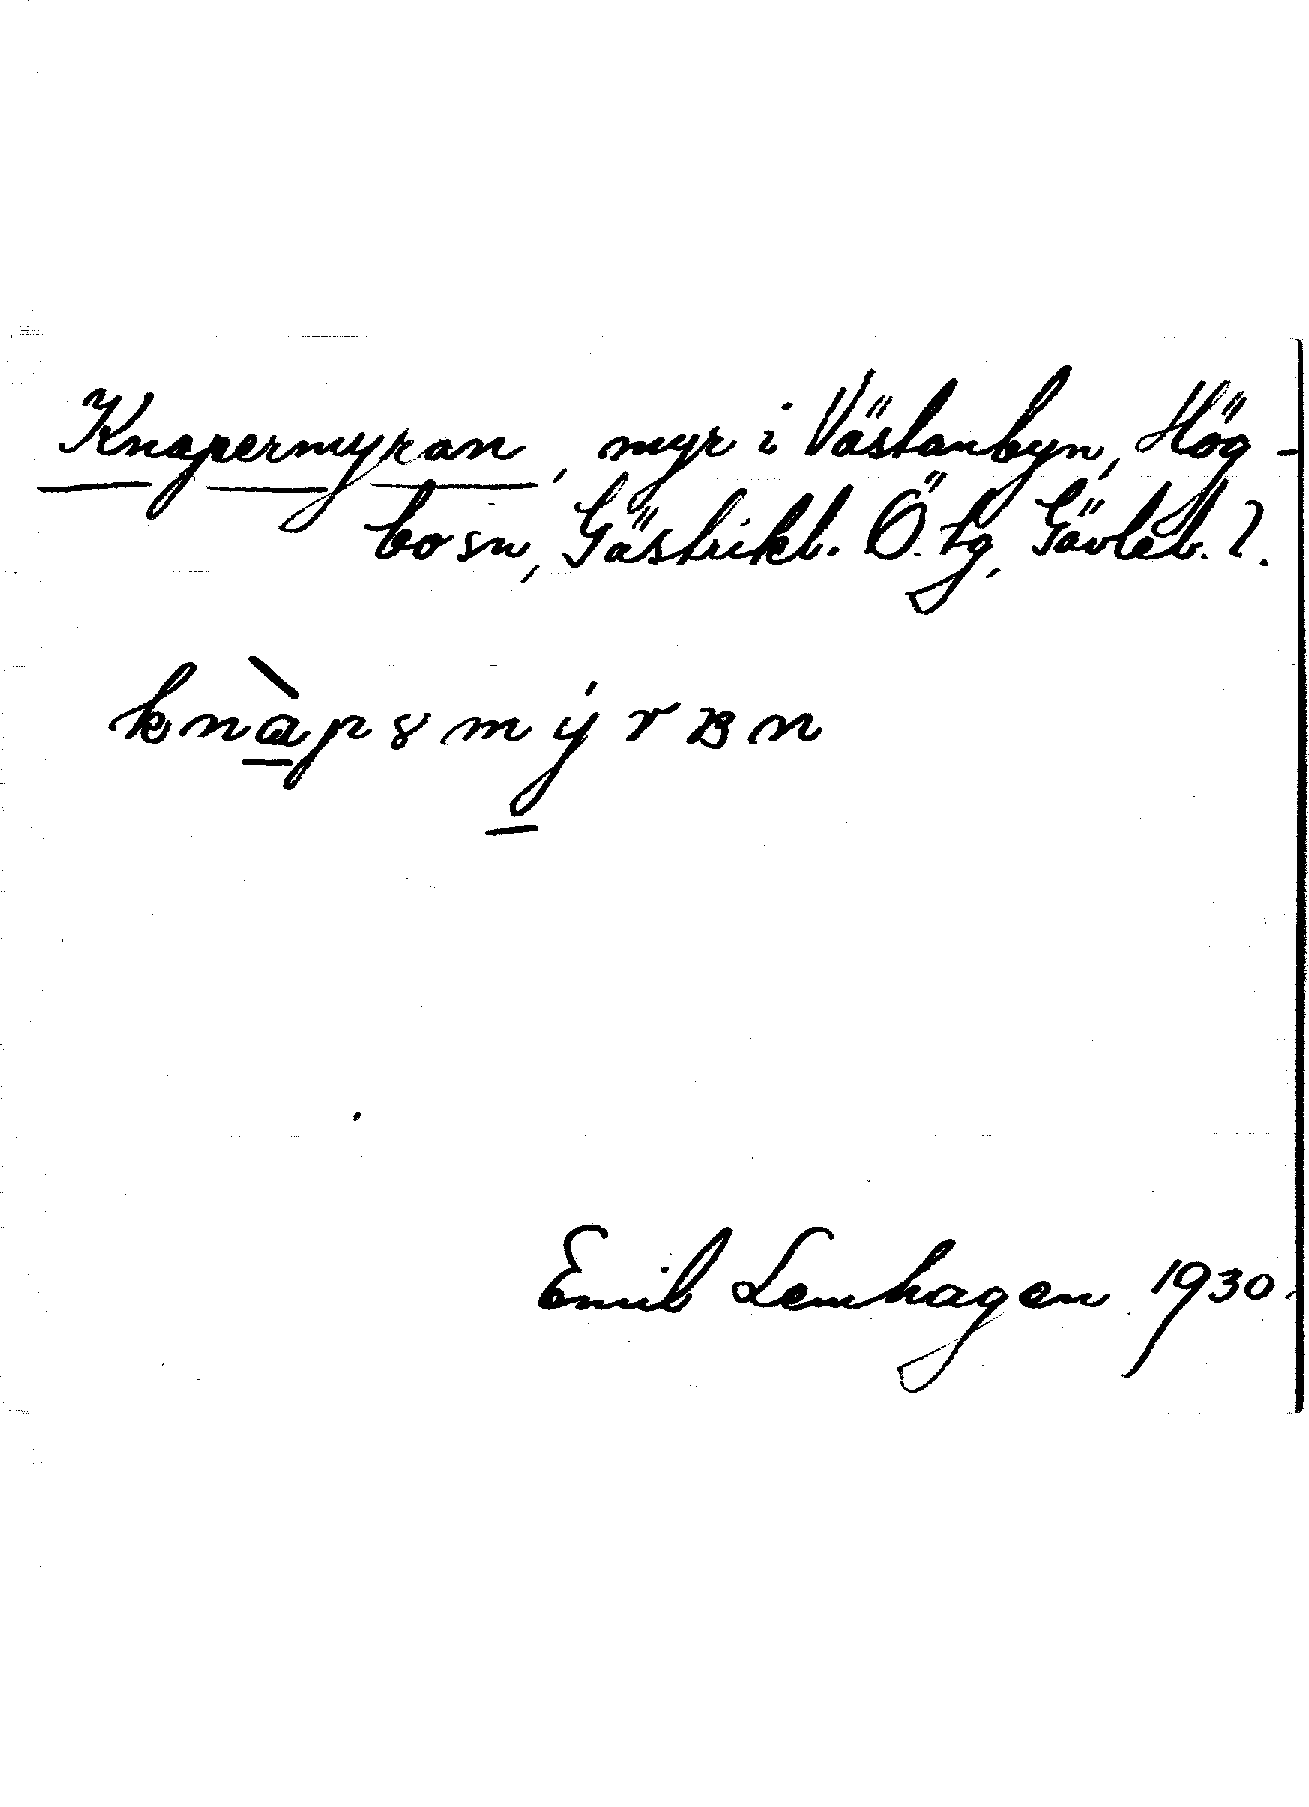 Knapermyran, myr i Västanbyn, Hög-
bo sn, Gästrikl. Ö. tg, Gävleb. l.
knàpₔmýrɐn
Emil Lenhagen 1930.